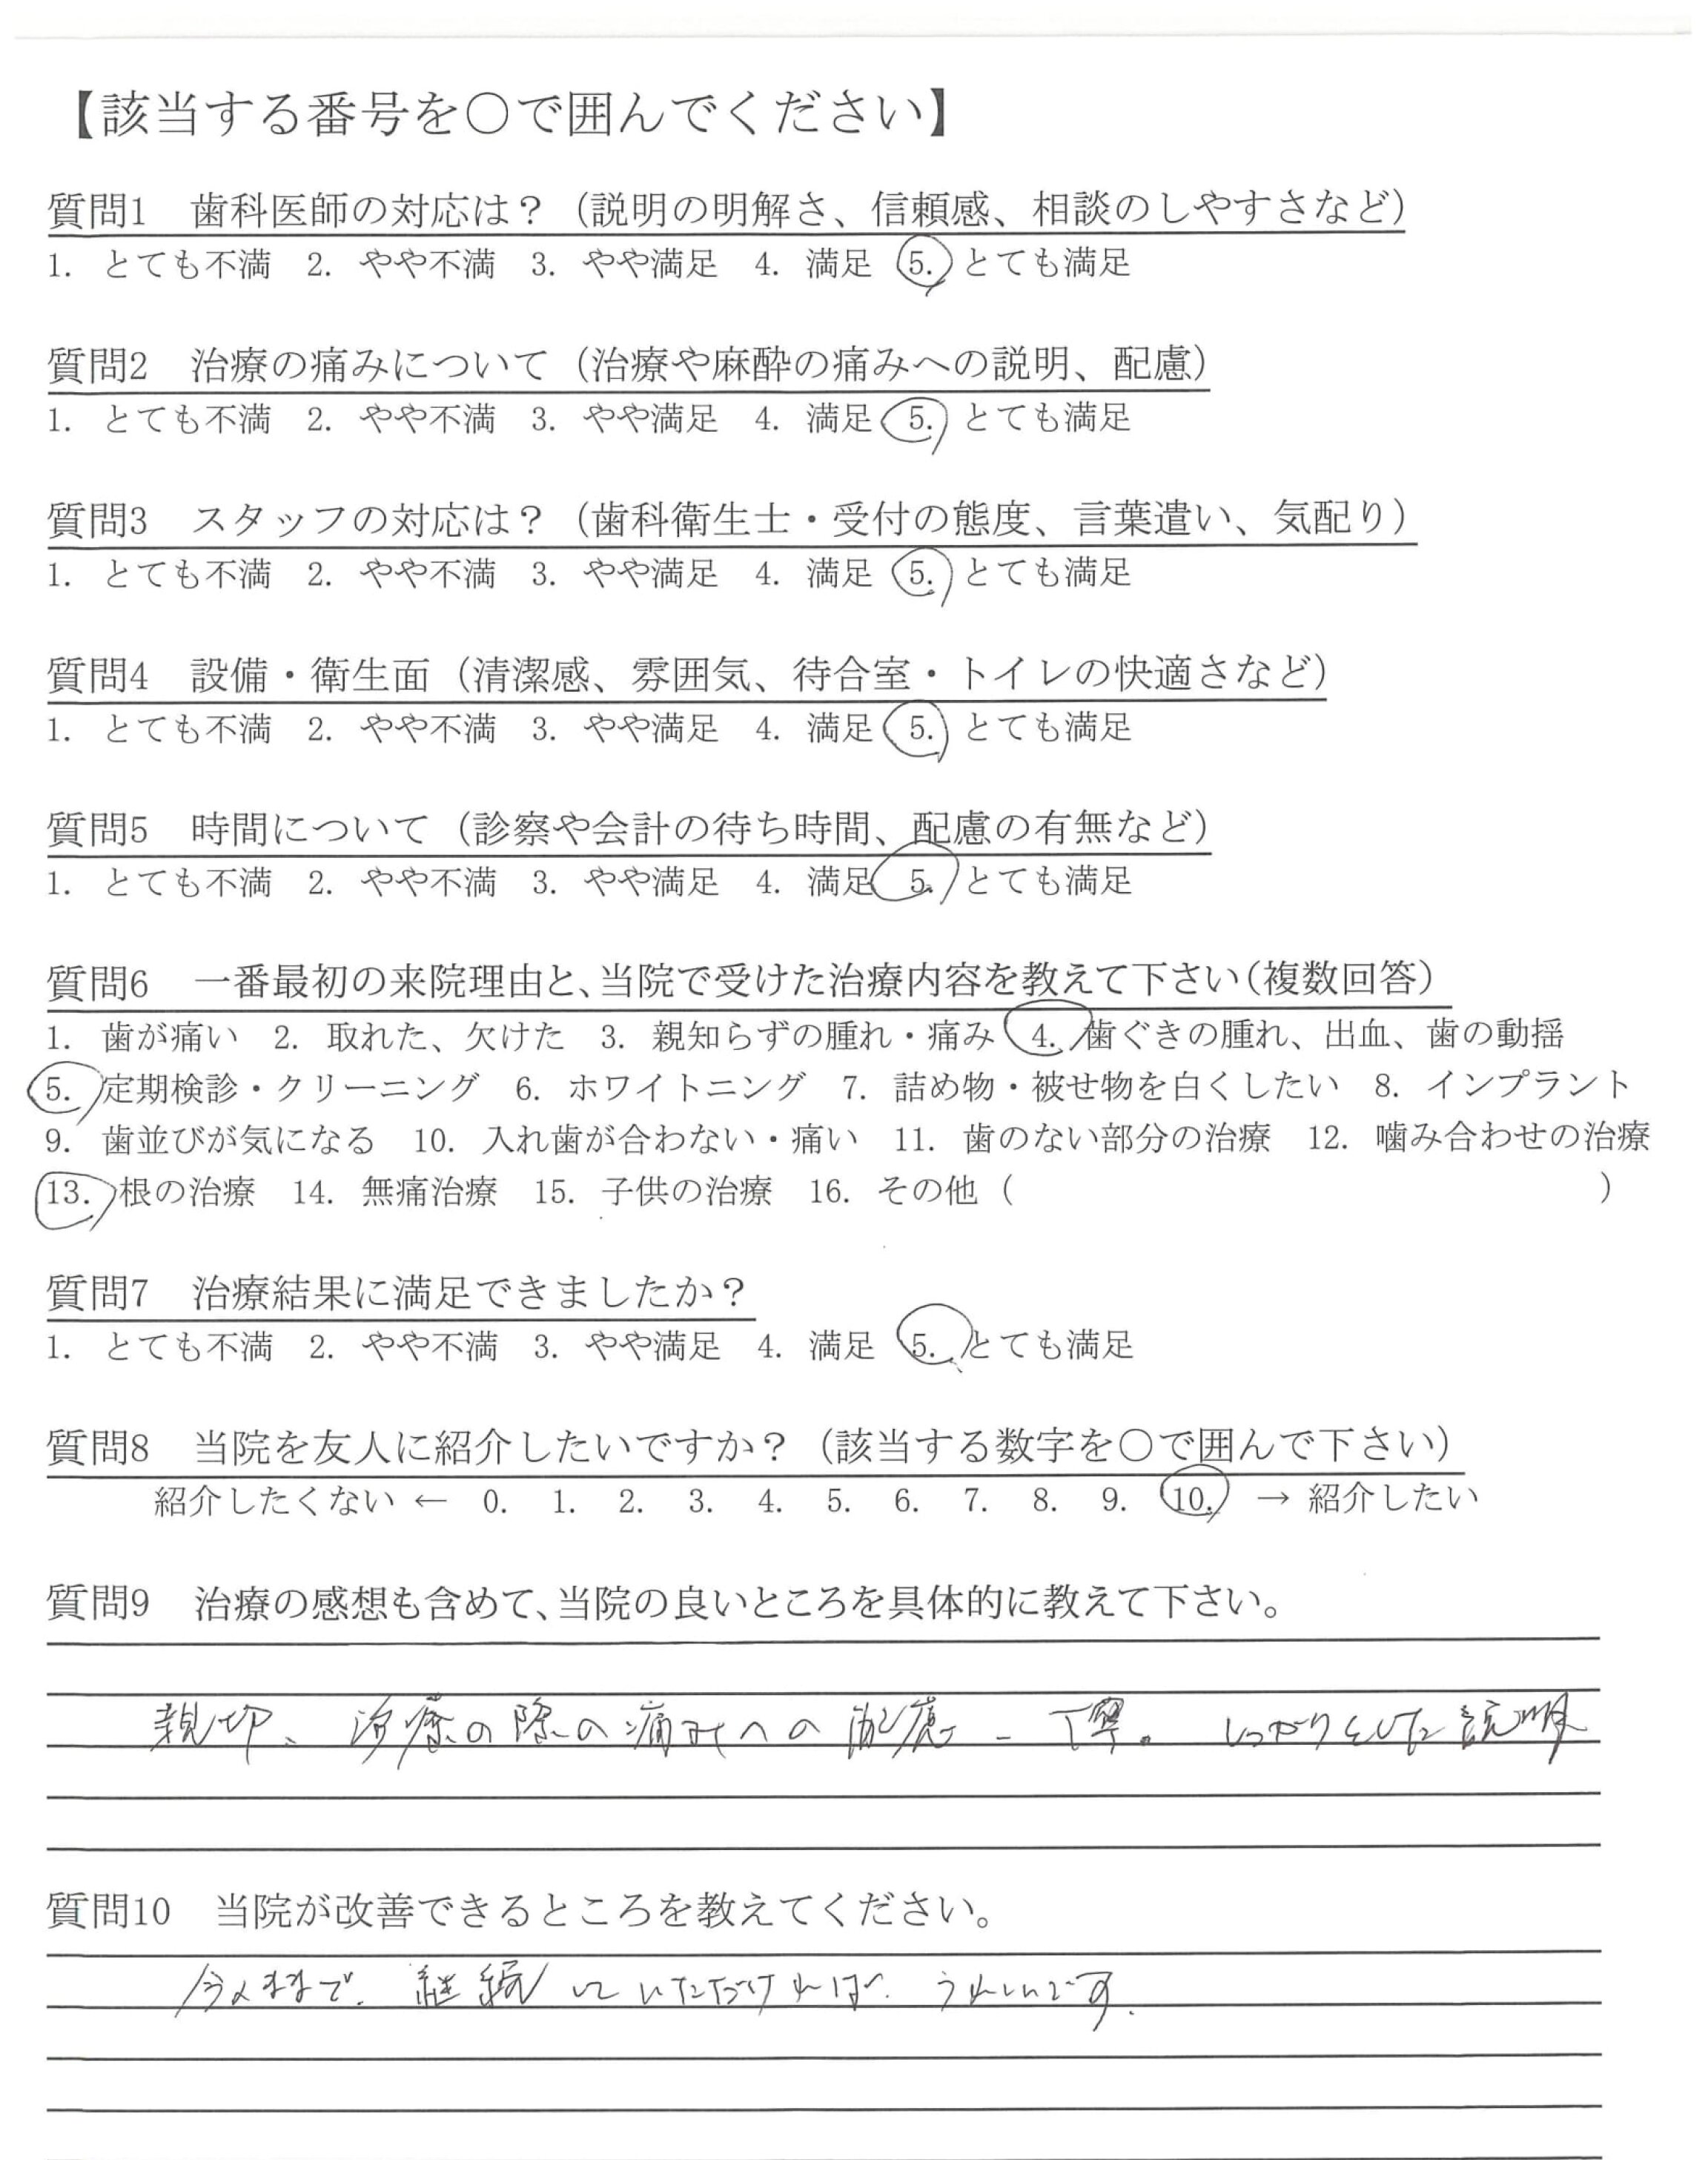 【該当する番号を〇で囲んでください】
質問1 歯科医師の対応は？（説明の明解さ、信頼感、相談のしやすさなど）
1. とても不満 2. やや不満 3. やや満足 4. 満足 5. とても満足
質問2 治療の痛みについて（治療や麻酔の痛みへの説明、配慮）
1. とても不満 2. やや不満 3. やや満足 4. 満足 5. とても満足
質問3 スタッフの対応は？（歯科衛生士・受付の態度、言葉遣い、気配り）
1. とても不満 2. やや不満 3. やや満足 4. 満足 5. とても満足
質問4 設備・衛生面（清潔感、雰囲気、待合室・トイレの快適さなど）
1. とても不満 2. やや不満 3. やや満足 4. 満足 5. とても満足
質問5 時間について（診察や会計の待ち時間、配慮の有無など）
1. とても不満 2. やや不満 3. やや満足 4. 満足 5. とても満足
質問6 一番最初の来院理由と、当院で受けた治療内容を教えて下さい（複数回答）
1. 歯が痛い 2. 取れた、欠けた 3. 親知らずの腫れ・痛み 4. 歯ぐきの腫れ、出血、歯の動揺
5. 定期検診・クリーニング 6. ホワイトニング 7. 詰め物・被せ物を白くしたい 8. インプラント
9. 歯並びが気になる 10. 入れ歯が合わない・痛い 11. 歯のない部分の治療 12. 噛み合わせの治療
13. 根の治療 14. 無痛治療 15. 子供の治療 16. その他（ ）
質問7 治療結果に満足できましたか？
1. とても不満 2. やや不満 3. やや満足 4. 満足 5. とても満足
質問8 当院を友人に紹介したいですか？（該当する数字を〇で囲んで下さい）
紹介したくない ← 0. 1. 2. 3. 4. 5. 6. 7. 8. 9. 10. → 紹介したい
質問9 治療の感想も含めて、当院の良いところを具体的に教えて下さい。
親切、治療の際の痛みへの配慮 丁寧。しっかりとした説明
質問10 当院が改善できるところを教えてください。
今のままで、継続していただければ、うれしいです。